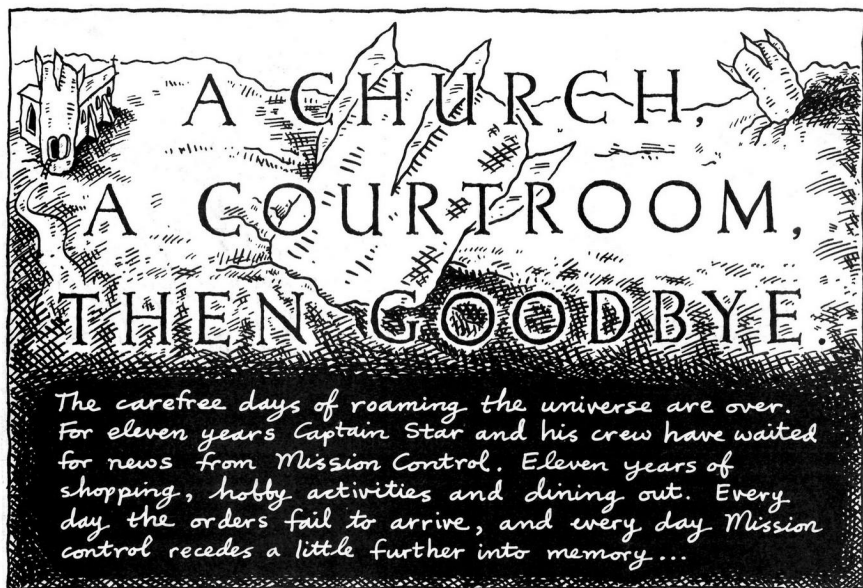 A CHURCH,
A COURTROOM,
THEN GOODBYE.
The carefree days of roaming the universe are over.
For eleven years Captain Star and his crew have waited
for news from Mission Control. Eleven years of
shopping, hobby activities and dining out. Every
day the orders fail to arrive, and every day Mission
control recedes a little further into memory...